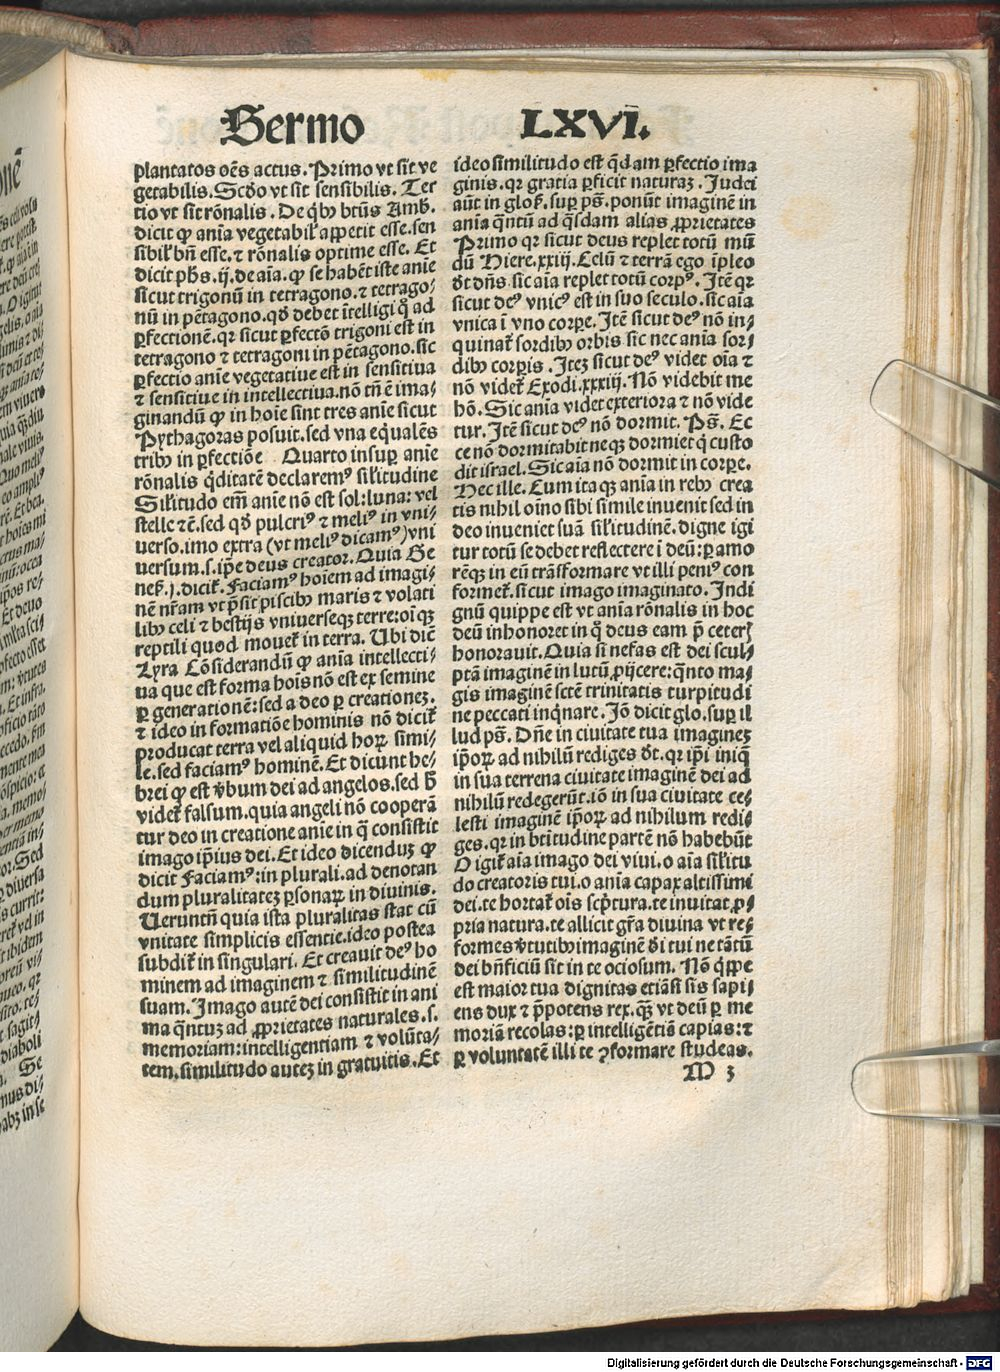 Sermo LXVI.
plantatos oēs actus. Primo vt sit ve
getabilis. Scďo vt sit sensibilis. Ter
tio vt sit rōnalis. De qbꝰ btūs Amb.
dicit ꝙ anīa vegetabilꝭ appetit esse. sen
sibilꝭ bñ esse. ⁊ rōnalis optime esse. Et
dicit phs. ij. de aīa. ꝙ se habēt iste anīe
sicut trigonū in tetragono. ⁊ tetrago⸗
nū in pētagono. qď debet ītelligi qͦ ad
ꝑfectionē. qꝛ sicut ꝑfectō trigoni est in
tetragono ⁊ tetragoni in pētagono. sic
ꝑfectio anīe vegetatiue est in sensitiua
⁊ sensitiue in intellectiua. nō tñ ē ima⸗
ginandū ꝙ in hoīe sint tres anīe sicut
Pythagoras posuit. sed vna eq̄ualēs
tribꝰ in ꝑfectiōe Quarto insuꝑ anīe
rōnalis qͥditatē declaremꝰ silitudine
Silitudo em̄ anīe nō est sol: luna: vel
stelle ⁊c̄. sed qď pulcriꝰ ⁊ meliꝰ in vni⸗
uerso. imo extra (vt meliꝰ dicamꝰ) vni
uersum. s. ip̄e deus creator. Quia Ge
neẜ. j. dicit̄. Faciamꝰ hoīem ad imagi⸗
nē nr̄am vt p̄sit piscibꝰ maris ⁊ volati
libꝰ celi ⁊ bestijs vniuerseqꝫ terre: oīqꝫ
reptili quod mouet̄ in terra. Ubi dic̄
Lyra Cōsiderandū ꝙ anīa intellecti⸗
ua que est forma hoīs nō est ex semine
ꝑ generationē: sed a deo ꝑ creationeꝫ.
⁊ ideo in formatiōe hominis nō dicit̄
producat terra vel aliquid hoꝝ simi⸗
le. sed faciamꝰ hominē. Et dicunt he⸗
brei ꝙ est v̄bum dei ad angelos. sed ɧ̄
videt̄ falsum. quia angeli nō cooperā
tur deo in creatione anīe in q̄ consistit
imago ip̄ius dei. Et ideo dicenduꝫ ꝙ
dicit Faciamꝰ: in plurali. ad denotan
dum pluralitateꝫ ꝑsonaꝝ in diuinis.
Ueruntñ quia ista pluralitas stat cū
vnitate simplicis essentie. ideo postea
subdit̄ in singulari. Et creauit deꝰ ho
minem ad imaginem ⁊ similitudinē
suam. Imago autē dei consistit in ani
ma qͣntuꝫ ad ꝓprietates naturales. s.
memoriam: intelligentiam ⁊ volūta⸗
tem. similitudo auteꝫ in gratuitis. Et
ideo similitudo est qͥdam ꝑfectio ima
ginis. qꝛ gratia ꝑficit naturaꝫ. Judei
aūt in gloẜ. suꝑ ps. ponūt imaginē in
anīa qͣntū ad qͣsdam alias ꝓprietates
Primo qꝛ sicut deus replet totū mū
dū Hiere. xxiij. Celū ⁊ terrā ego īpleo
ďt dñs. sic aīa replet totū corpꝰ. Itē qꝛ
sicut deꝰ vnicꝰ est in suo seculo. sic aīa
vnica ī vno corꝑe. Itē sicut deꝰ nō in⸗
quinat̄ sordibꝰ orbis sic nec anīa sor⸗
dibꝰ corꝑis. Iteꝫ sicut deꝰ videt oīa ⁊
nō videt̄ Exodi. xxxiij. Nō videbit me
hō. Sic anīa videt exteriora ⁊ nō vide
tur. Itē sicut deꝰ nō dormit. Ps. Ec
ce nō dormitabit neqꝫ dormiet qͥ custo
dit israel. Sic aīa nō dormit in corꝑe.
Hec ille. Cum itaqꝫ anīa in rebꝰ crea
tis nihil oīno sibi simile inuenit sed in
deo inueniet suā silitudinē. digne igi
tur totū se debet reflectere ī deū: ꝑ amo
rēqꝫ in eū trāsformare vt illi penitꝰ con
formet̄. sicut imago imaginato. Indi
gnū quippe est vt anīa rōnalis in hoc
deū inhonoret in qͦ deus eam p̄ ceterꝭ
honorauit. Quia si nefas est dei scul⸗
ptā imaginē in lutū ꝓijcere: qͣnto ma
gis imaginē scte trinitatis turpitudi
ne peccati inqͥnare. Jō dicit glo. suꝑ il
lud ps. Dñe in ciuitate tua imagineꝫ
ip̄oꝝ ad nihilū rediges ďt. qꝛ ip̄i iniqͥ
in sua terrena ciuitate imaginē dei ad
nihilū redegerūt. iō in sua ciuitate ce⸗
lesti imaginē ip̄oꝝ ad nihilum redi⸗
ges. qꝛ in btītudine partē nō habebūt
O igit̄ aīa imago dei viui. o aīa silitu
do creatoris tui. o anīa capax altissimi
dei. te hortat̄ oīs sc̄ptura. te inuitat ꝓ⸗
pria natura. te allicit gr̄a diuina vt re⸗
formes v̄tutibꝰ imaginē ďi tui ne tātū
dei bñficiū sit in te ociosum. Nō qͥppe
est maior tua dignitas etiāsi sis sapi⸗
ens dux ⁊ p̄potens rex. qͣꝫ vt deū ꝑ me
moriā recolas: ꝑ intelligētiā capias: ⁊
ꝑ voluntatē illi te ꝯformare studeas.
M 3
Digitalisierung gefördert durch die Deutsche Forschungsgemeinschaft - DFG